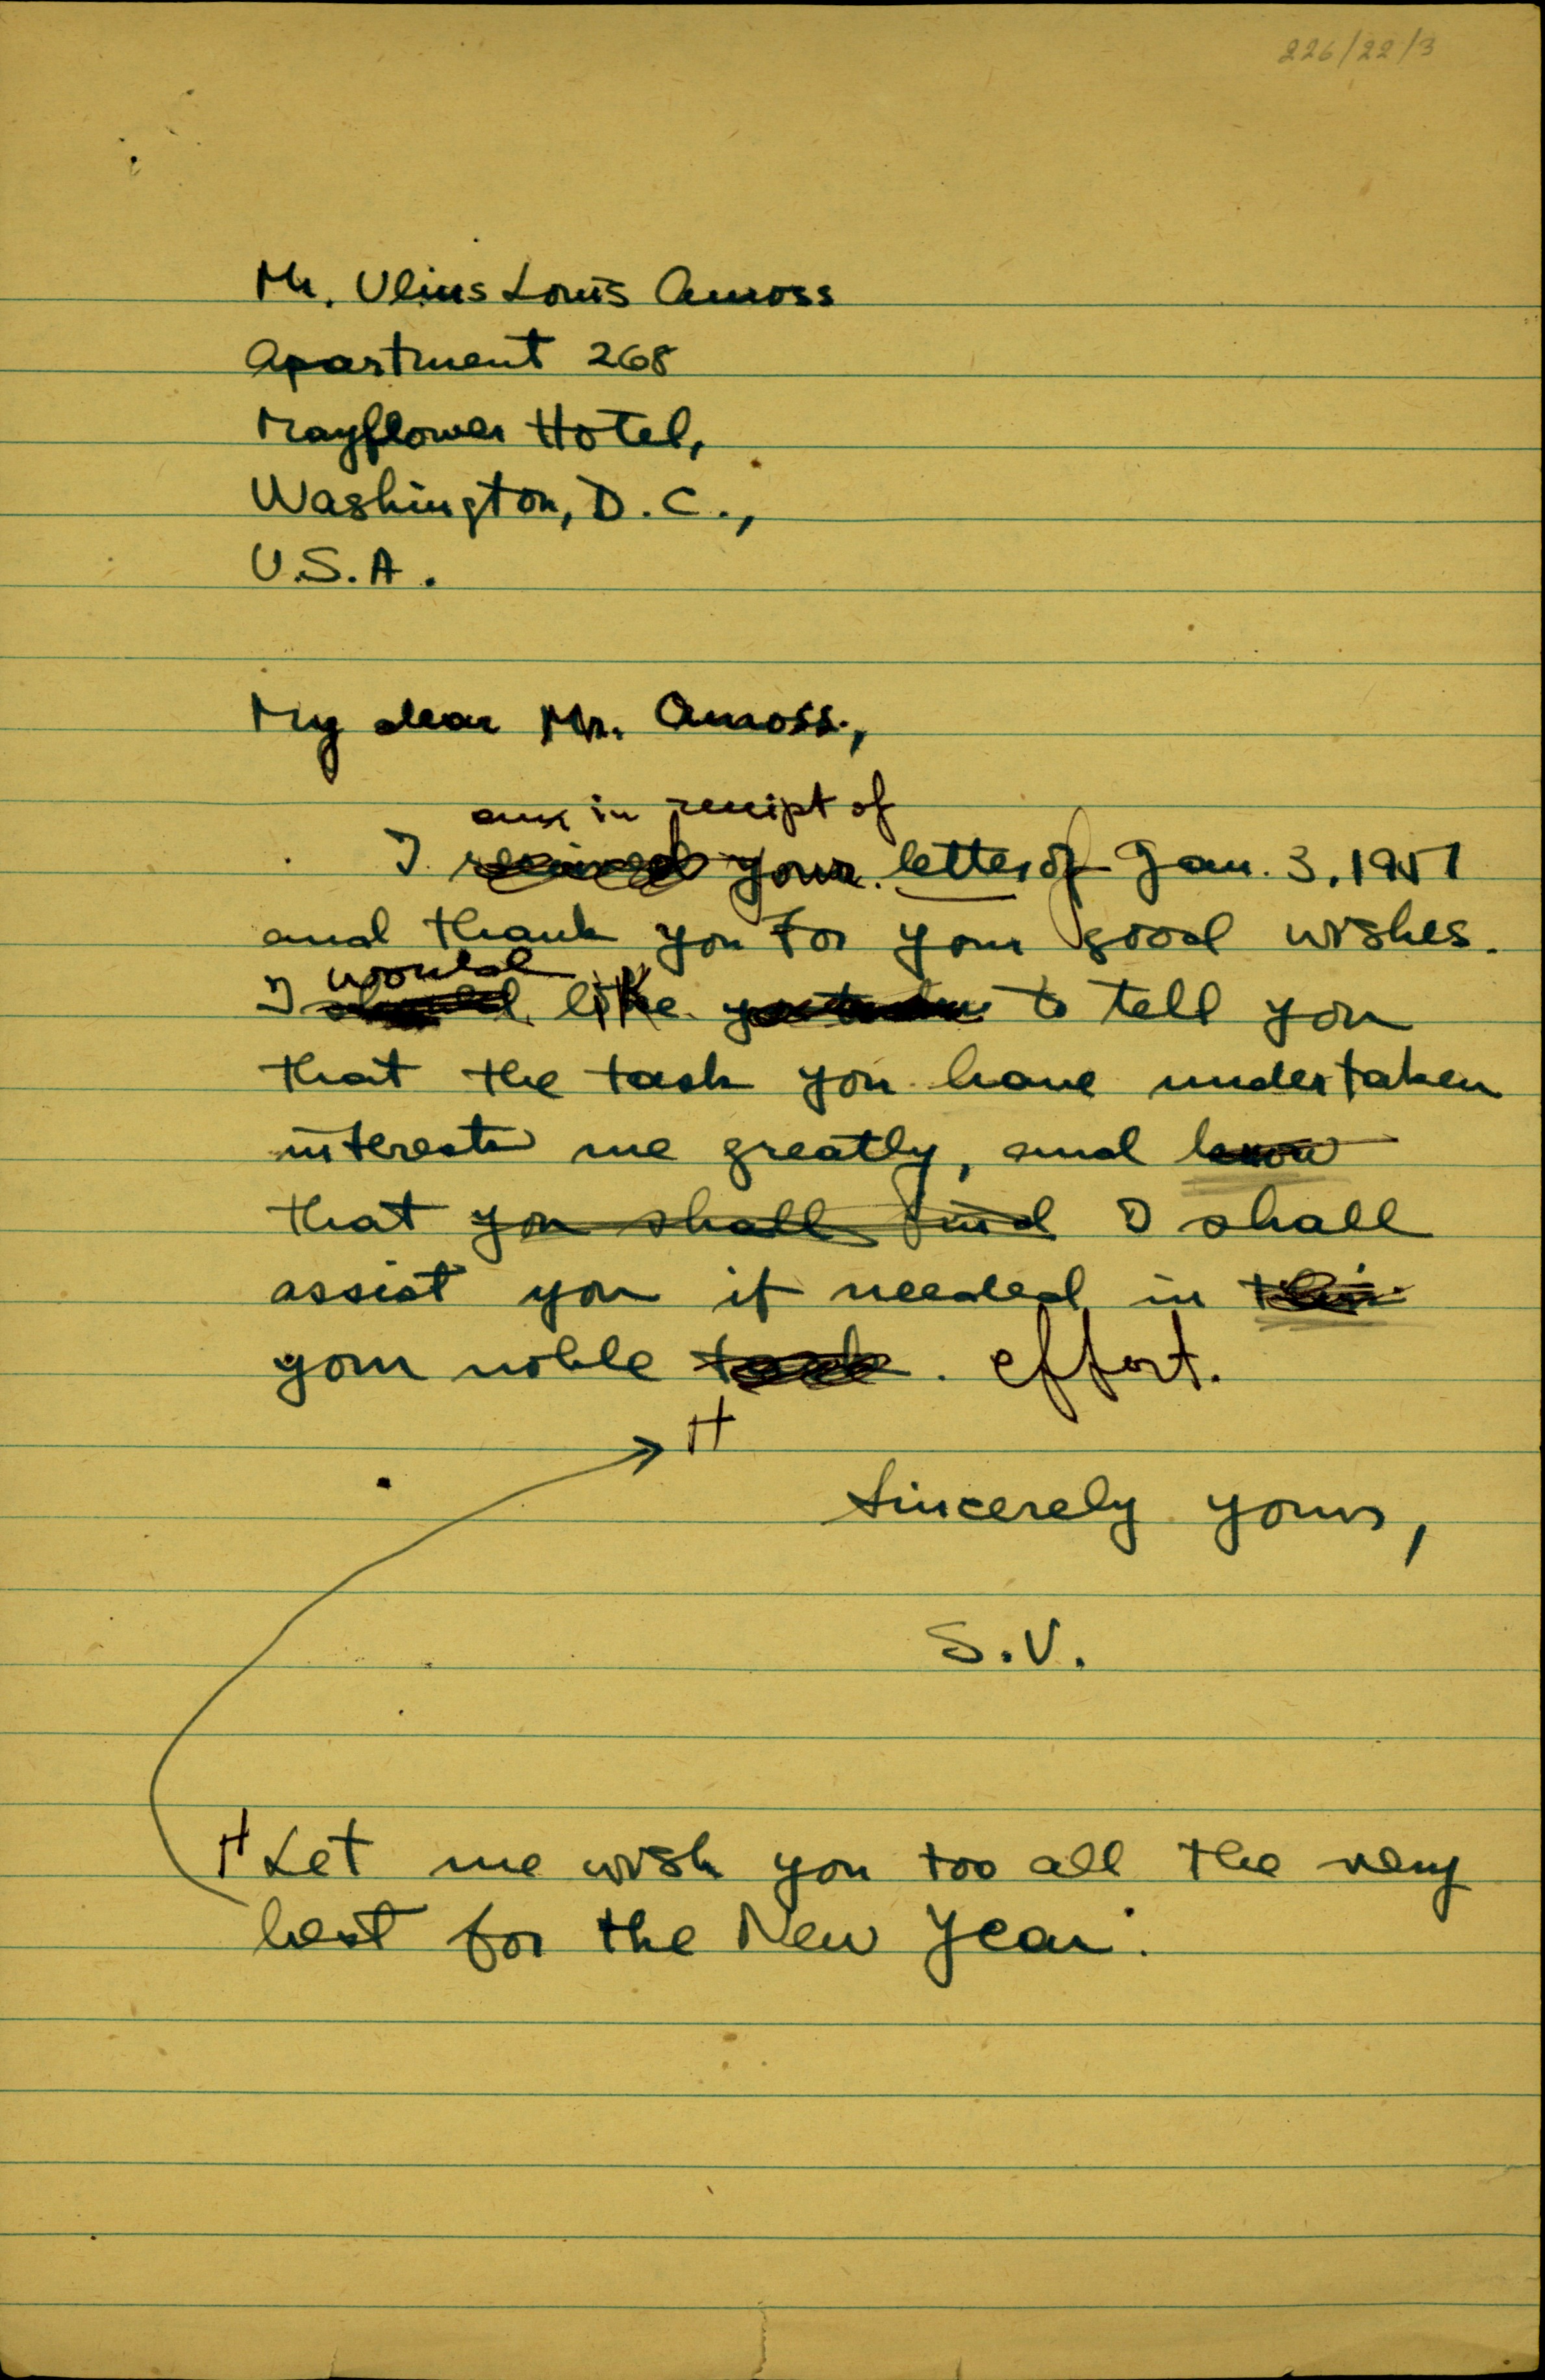 226/22/3
Mr. Ulius Louis Amoss
Apartment 268
Mayflower Hotel,
Washington, D.C.,
U.S.A.
My dear Mr. Amoss,
am in receipt of
I received your letter of Jan. 3, 1951
and thank you for your good wishes.
would
I should like to tell you
that the task you have undertaken
interests me greatly, and know
that you shall find I shall
assist you if needed in this
your noble task. effort.
H
Sincerely yours,
S.V.
H Let me wish you too all the very
best for the New Year.